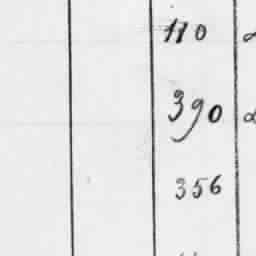 110
390
356